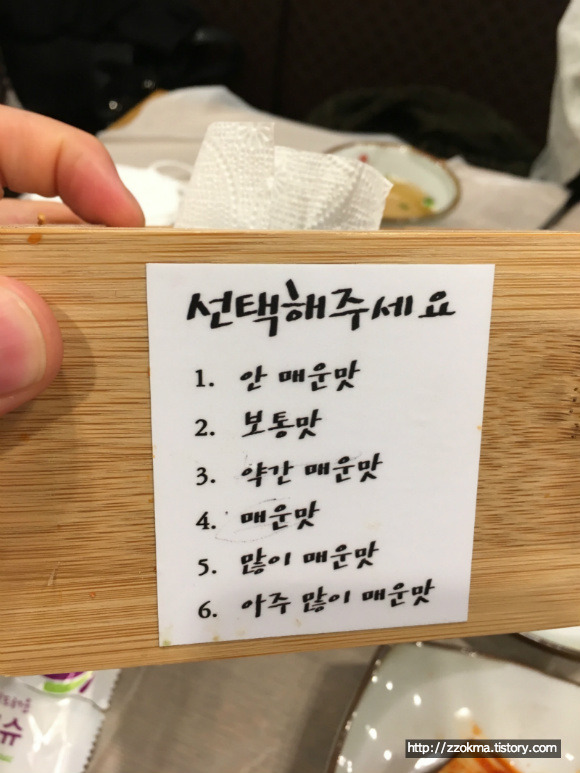 선택해주세요
1. 안 매운맛
2. 보통맛
3. 약간 매운맛
4. 매운맛
5. 많이 매운맛
6. 아주 많이 매운맛
슈
http://zzokma.tistory.com